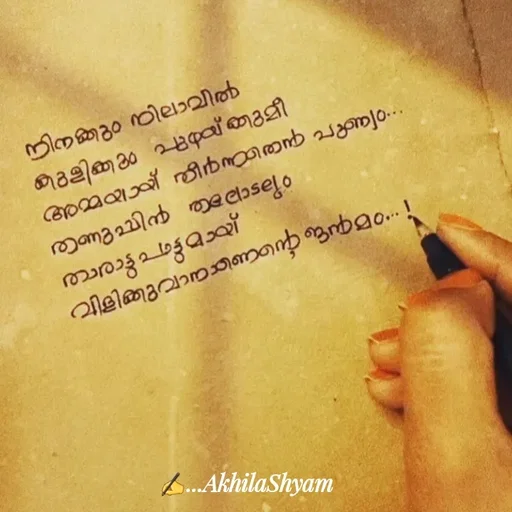 നിനക്കും നിലാവിൽ
കുളിക്കും പുഴയ്ക്കുമീ
അമ്മയായ് തീർന്നതെൻ പുണ്യം...
തണുപ്പിൻ തലോടലും
താരാട്ടുപാട്ടുമായ്
വിളിക്കുവാനാണെന്റെ ജൻമം...!
✍️...AkhilaShyam